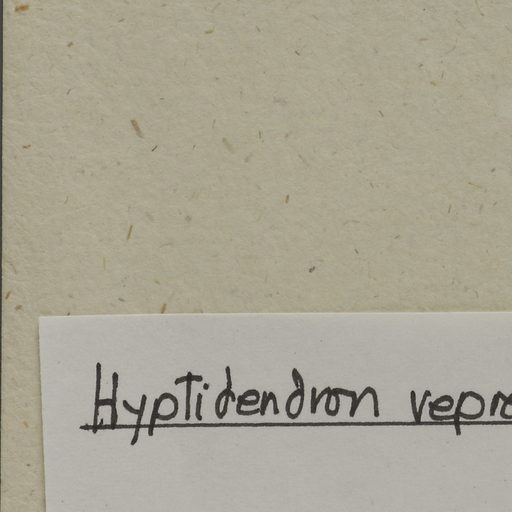 Hyptidendron repre